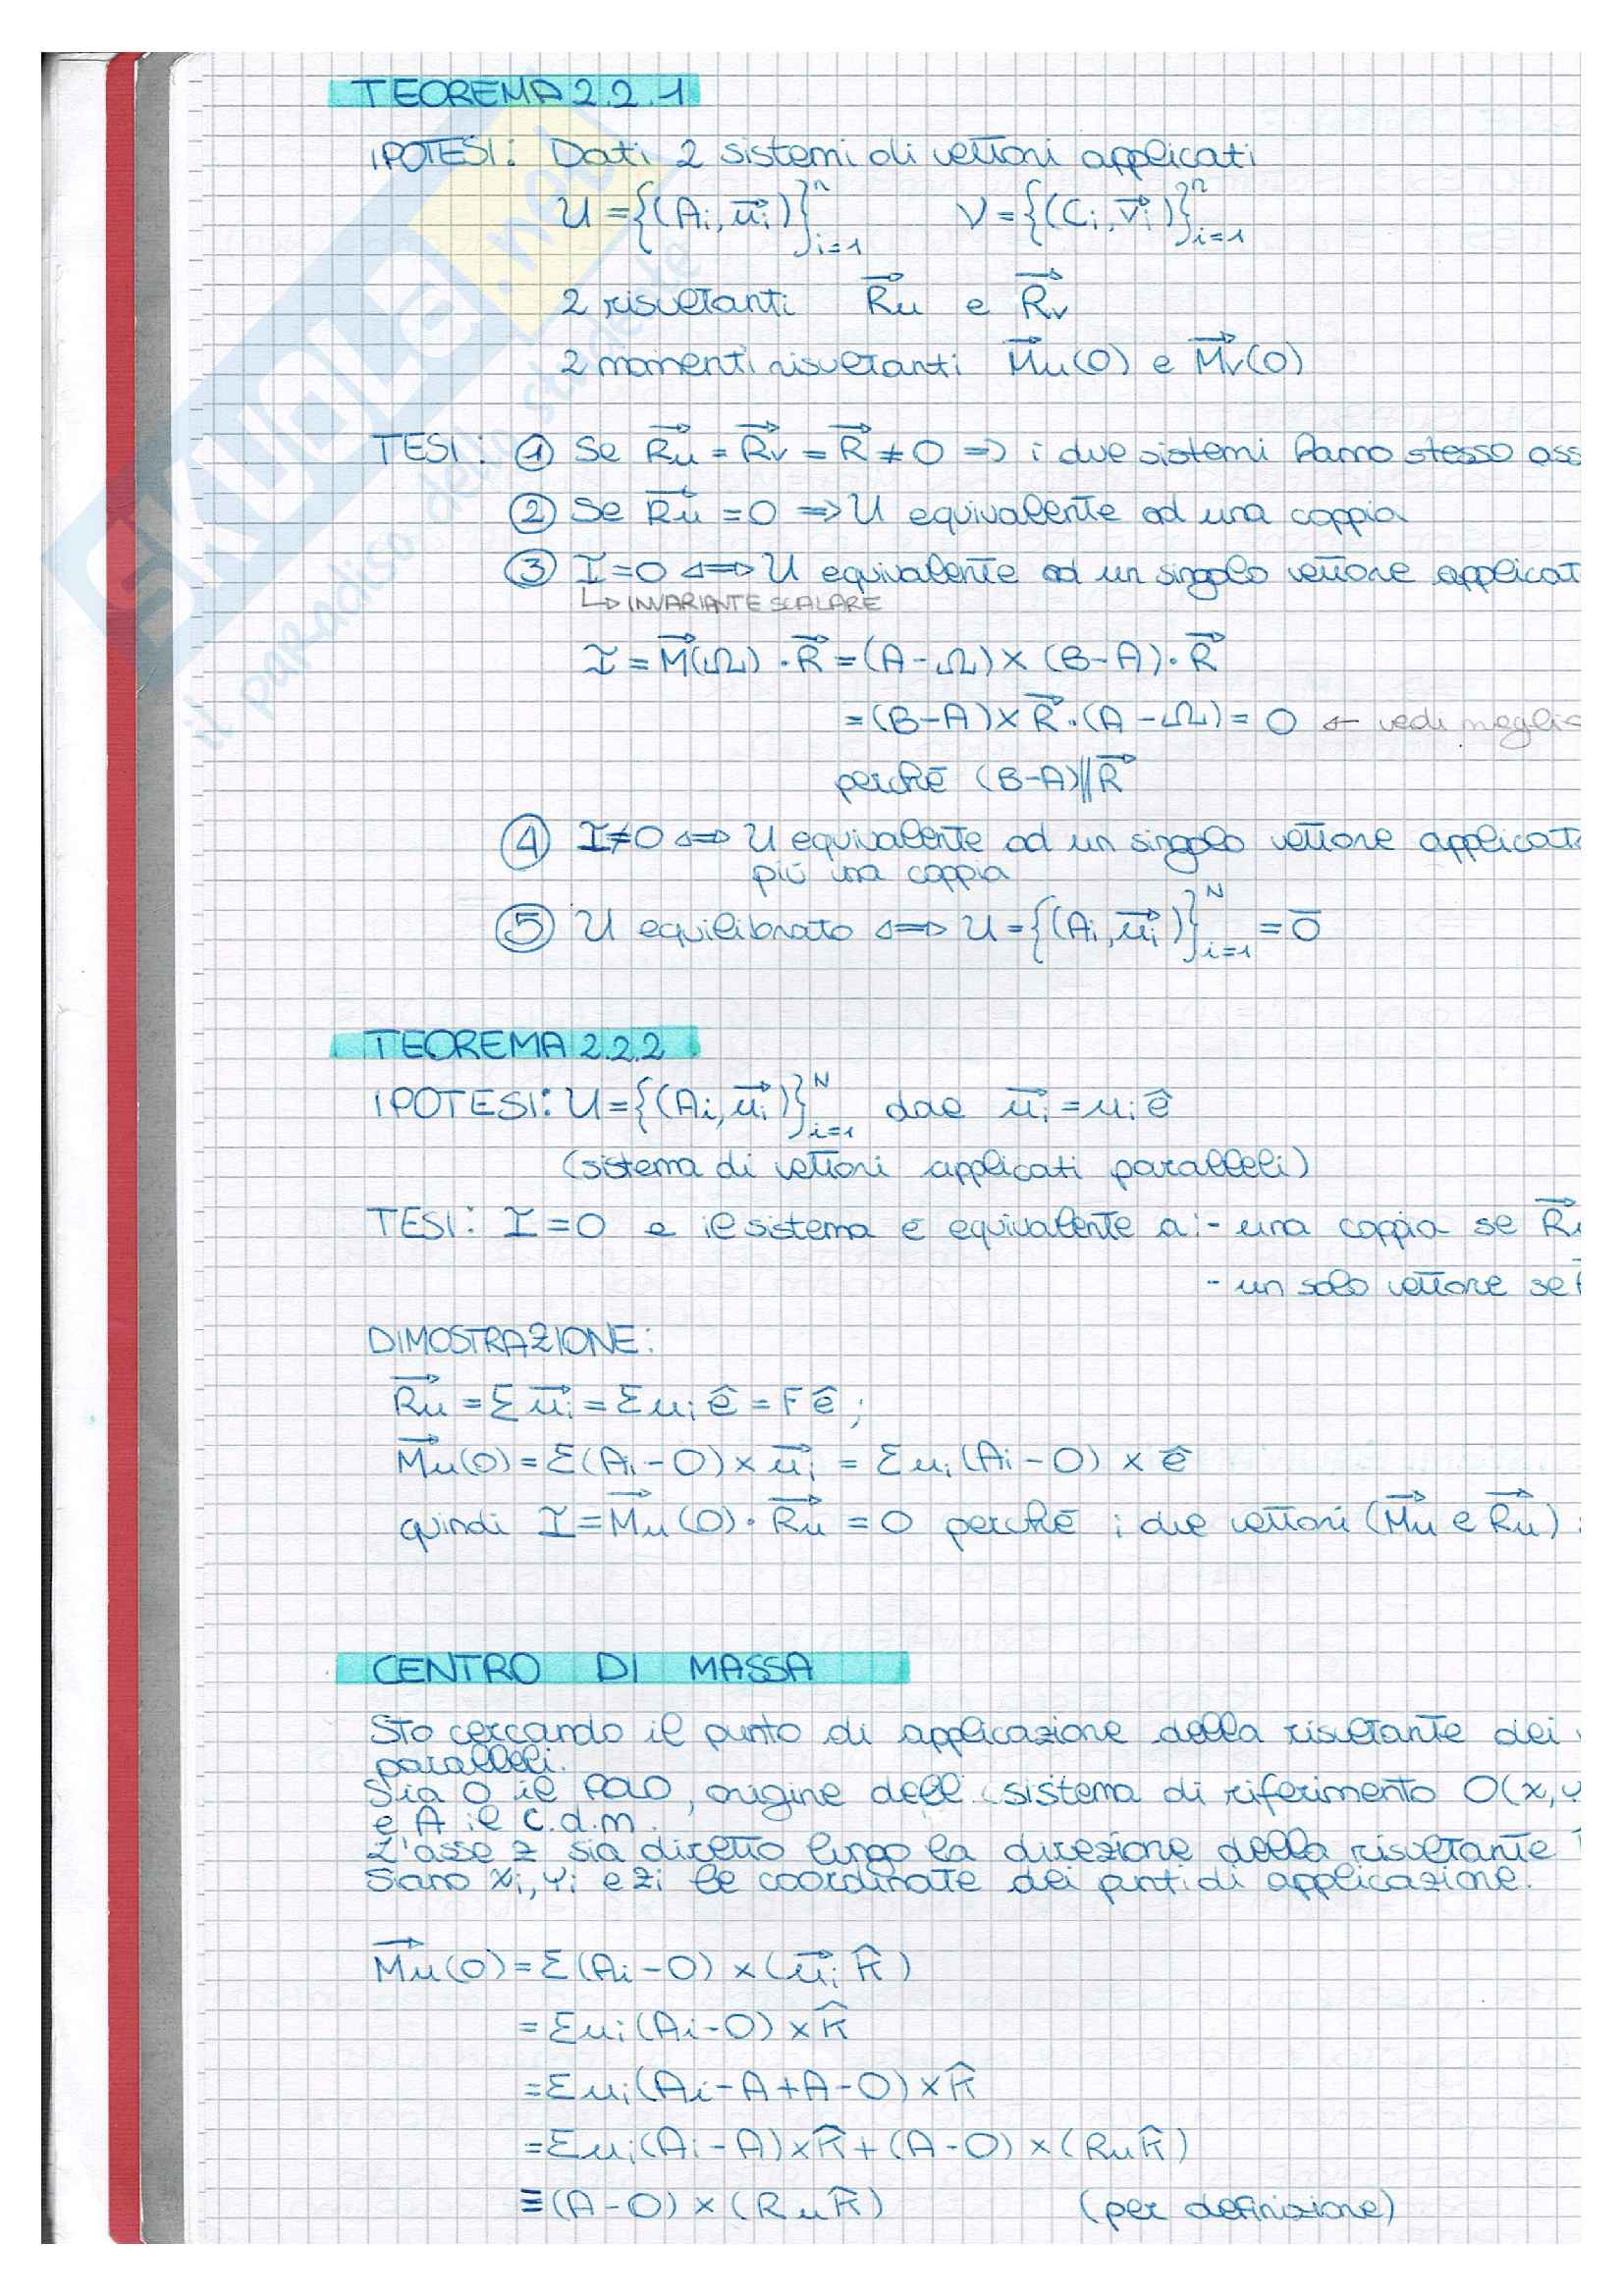 TEOREMA 2.2.1
IPOTESI: Dati 2 sistemi di vettori applicati
U = {(Ai, u⃗i)}ⁿi=1 V = {(Ci, v⃗i)}ⁿi=1
2 risultanti R⃗u e R⃗v
2 momenti risultanti M⃗u(O) e M⃗v(O)
TESI: ① Se R⃗u = R⃗v = R⃗ ≠ 0 => i due sistemi hanno stesso ass
② Se R⃗u = 0 => U equivalente ad una coppia
③ I=0 <=> U equivalente ad un singolo vettore applicat
↳ INVARIANTE SCALARE
I = M⃗(Ω) · R⃗ = (A-Ω) × (B-A) · R⃗
= (B-A) × R⃗ · (A-Ω) = 0 ← vedi meglio
perché (B-A) ∥ R⃗
④ I≠0 <=> U equivalente ad un singolo vettore applicato
più una coppia
⑤ U equilibrato <=> U = {(Ai, u⃗i)}ᴺi=1 = 0̅
TEOREMA 2.2.2
IPOTESI: U = {(Ai, u⃗i)}ᴺi=1 dae u⃗i = ui ê
(sistema di vettori applicati paralleli)
TESI: I=0 e il sistema e equivalente a: - una coppia se R⃗u
- un solo vettore se
DIMOSTRAZIONE:
R⃗u = Σ u⃗i = Σ ui ê = F ê ;
M⃗u(O) = Σ(Ai-O) × u⃗i = Σ ui (Ai-O) × ê
quindi I = M⃗u(O) · R⃗u = 0 perché i due vettori (M⃗u e R⃗u)
CENTRO DI MASSA
Sto cercando il punto di applicazione della risultante dei
paralleli.
Sia O il POLO, origine dell sistema di riferimento O(x, y
e A il c.d.m.
L'asse z sia diretto lungo la direzione della risultante
Siano xi, yi e zi le coordinate dei punti di applicazione.
M⃗u(O) = Σ(Ai-O) × (u⃗i k̂)
= Σ ui (Ai-O) × k̂
= Σ ui (Ai-A+A-O) × k̂
= Σ ui (Ai-A) × k̂ + (A-O) × (Ru k̂)
≡ (A-O) × (Ru k̂) (per definizione)
SKUOLA.net
il paradiso dello studente